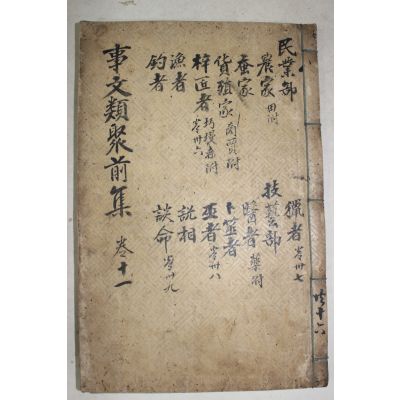 民業部
農家 田附
蚕家
貨殖家 商賈附
梓匠者 巧技者附 卷卅六
漁者
釣者
獵者 卷卅七
技藝部
醫者 藥附
卜筮者
巫者 卷卅八
説相
談命 卷卅九
事文類聚前集 卷十一
共十六